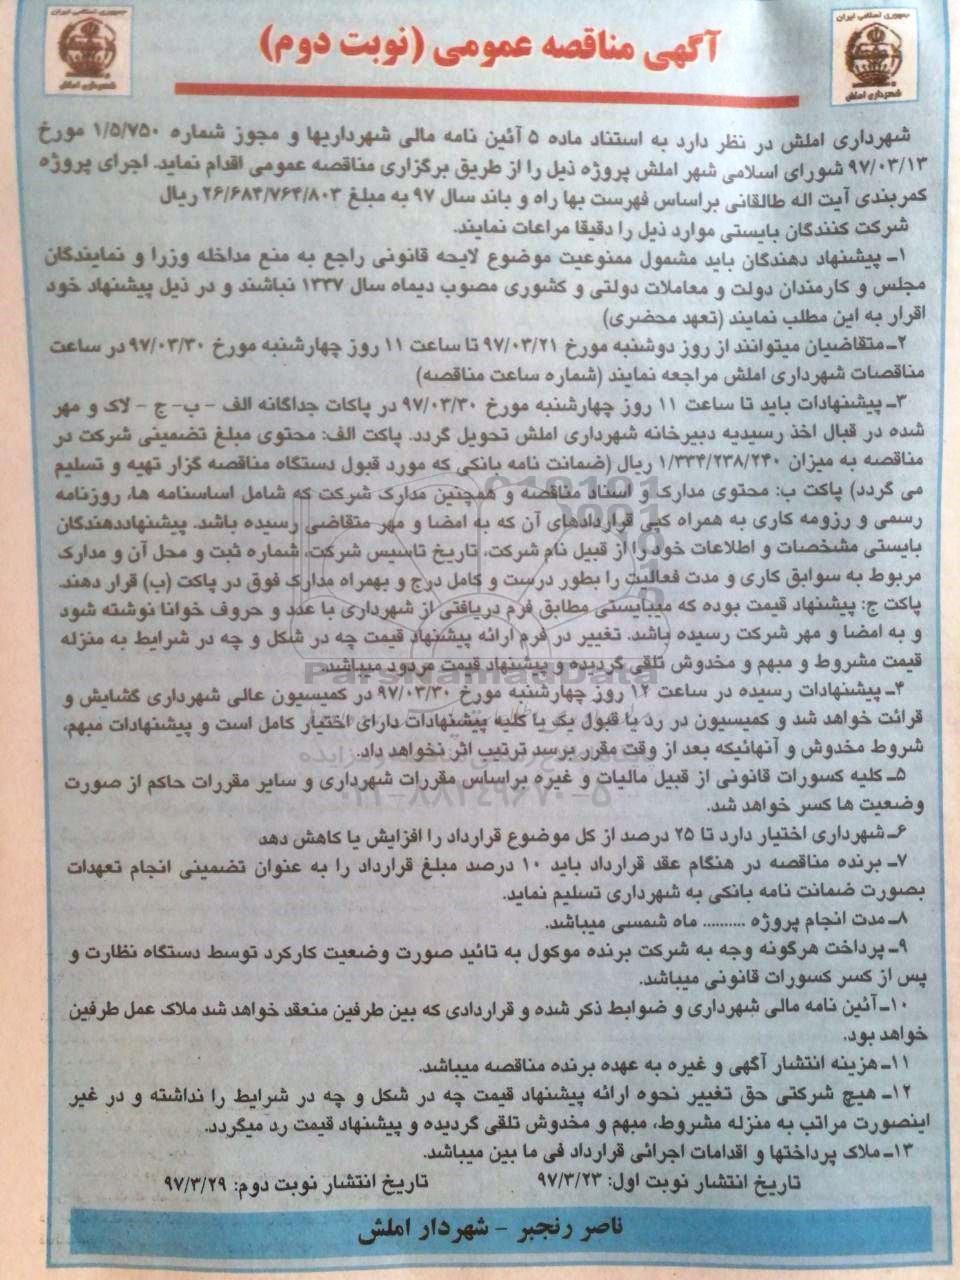 جمهوری اسلامی ایران
شهرداری املش
جمهوری اسلامی ایران
شهرداری املش
آگهی مناقصه عمومی (نوبت دوم)
شهرداری املش در نظر دارد به استناد ماده ۵ آئین نامه مالی شهرداریها و مجوز شماره ۱/۵/۷۵۰ مورخ
۹۷/۰۳/۱۳ شورای اسلامی شهر املش پروژه ذیل را از طریق برگزاری مناقصه عمومی اقدام نماید. اجرای پروژه
کمربندی آیت اله طالقانی براساس فهرست بها راه و باند سال ۹۷ به مبلغ ۲۶/۶۸۴/۷۶۴/۸۰۳ ریال
شرکت کنندگان بایستی موارد ذیل را دقیقا مراعات نمایند.
۱ـ پیشنهاد دهندگان باید مشمول ممنوعیت موضوع لایحه قانونی راجع به منع مداخله وزرا و نمایندگان
مجلس و کارمندان دولت و معاملات دولتی و کشوری مصوب دیماه سال ۱۳۳۷ نباشند و در ذیل پیشنهاد خود
اقرار به این مطلب نمایند (تعهد محضری)
۲ـ متقاضیان میتوانند از روز دوشنبه مورخ ۹۷/۰۳/۲۱ تا ساعت ۱۱ روز چهارشنبه مورخ ۹۷/۰۳/۳۰ در ساعت
مناقصات شهرداری املش مراجعه نمایند (شماره ساعت مناقصه)
۳ـ پیشنهادات باید تا ساعت ۱۱ روز چهارشنبه مورخ ۹۷/۰۳/۳۰ در پاکات جداگانه الف - ب- ج - لاک و مهر
شده در قبال اخذ رسیدیه دبیرخانه شهرداری املش تحویل گردد. پاکت الف: محتوی مبلغ تضمینی شرکت در
مناقصه به میزان ۱/۳۳۴/۲۳۸/۲۴۰ ریال (ضمانت نامه بانکی که مورد قبول دستگاه مناقصه گزار تهیه و تسلیم
می گردد) پاکت ب: محتوی مدارک و اسناد مناقصه و همچنین مدارک شرکت که شامل اساسنامه ها، روزنامه
رسمی و رزومه کاری به همراه کپی قراردادهای آن که به امضا و مهر متقاضی رسیده باشد. پیشنهاددهندگان
بایستی مشخصات و اطلاعات خود را از قبیل نام شرکت، تاریخ تاسیس شرکت، شماره ثبت و محل آن و مدارک
مربوط به سوابق کاری و مدت فعالیت را بطور درست و کامل درج و بهمراه مدارک فوق در پاکت (ب) قرار دهند.
پاکت ج: پیشنهاد قیمت بوده که میبایستی مطابق فرم دریافتی از شهرداری با عدد و حروف خوانا نوشته شود
و به امضا و مهر شرکت رسیده باشد. تغییر در فرم ارائه پیشنهاد قیمت چه در شکل و چه در شرایط به منزله
قیمت مشروط و مبهم و مخدوش تلقی گردیده و پیشنهاد قیمت مردود میباشد.
ParsNamadData
۴ـ پیشنهادات رسیده در ساعت ۱۲ روز چهارشنبه مورخ ۹۷/۰۳/۳۰ در کمیسیون عالی شهرداری گشایش و
قرائت خواهد شد و کمیسیون در رد یا قبول یک یا کلیه پیشنهادات دارای اختیار کامل است و پیشنهادات مبهم،
شروط مخدوش و آنهائیکه بعد از وقت مقرر برسد ترتیب اثر نخواهد داد.
۵ـ کلیه کسورات قانونی از قبیل مالیات و غیره براساس مقررات شهرداری و سایر مقررات حاکم از صورت
وضعیت ها کسر خواهد شد.
۰۲۱-۸۸۳۴۹۶۷۰-۵
۶ـ شهرداری اختیار دارد تا ۲۵ درصد از کل موضوع قرارداد را افزایش یا کاهش دهد
۷ـ برنده مناقصه در هنگام عقد قرارداد باید ۱۰ درصد مبلغ قرارداد را به عنوان تضمینی انجام تعهدات
بصورت ضمانت نامه بانکی به شهرداری تسلیم نماید.
۸ـ مدت انجام پروژه .......... ماه شمسی میباشد.
۹ـ پرداخت هرگونه وجه به شرکت برنده موکول به تائید صورت وضعیت کارکرد توسط دستگاه نظارت و
پس از کسر کسورات قانونی میباشد.
۱۰ـ آئین نامه مالی شهرداری و ضوابط ذکر شده و قراردادی که بین طرفین منعقد خواهد شد ملاک عمل طرفین
خواهد بود.
۱۱ـ هزینه انتشار آگهی و غیره به عهده برنده مناقصه میباشد.
۱۲ـ هیچ شرکتی حق تغییر نحوه ارائه پیشنهاد قیمت چه در شکل و چه در شرایط را نداشته و در غیر
اینصورت مراتب به منزله مشروط، مبهم و مخدوش تلقی گردیده و پیشنهاد قیمت رد میگردد.
۱۳ـ ملاک پرداختها و اقدامات اجرائی قرارداد فی ما بین میباشد.
تاریخ انتشار نوبت اول: ۹۷/۳/۲۳ تاریخ انتشار نوبت دوم: ۹۷/۳/۲۹
ناصر رنجبر - شهردار املش